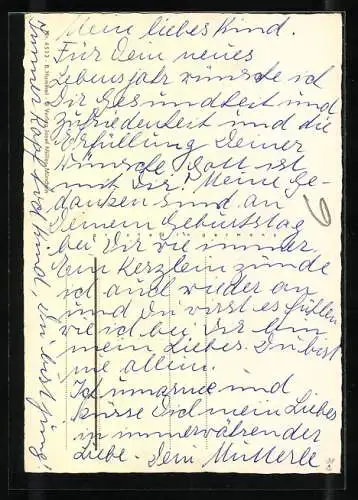 Mein liebes Kind.
Für Dein neues
Lebensjahr wünsche ich
Dir Gesundheit und
Zufriedenheit und die
Erfüllung Deiner
Wünsche. Gott ist
mit Dir! Meine Ge-
danken sind an
Deinem Geburtstag
bei Dir wie immer.
Ein Kerzlein zünde
ich auch wieder an
und Du wirst es fühlen
wie ich bei Dir bin
mein Liebes. Du bist
nie allein.
Ich umarme und
küsse Dich mein Liebes
in immerwährender
Liebe. Dein Mutterle
Immer Kopf hoch Kind, Du bist jung!
6